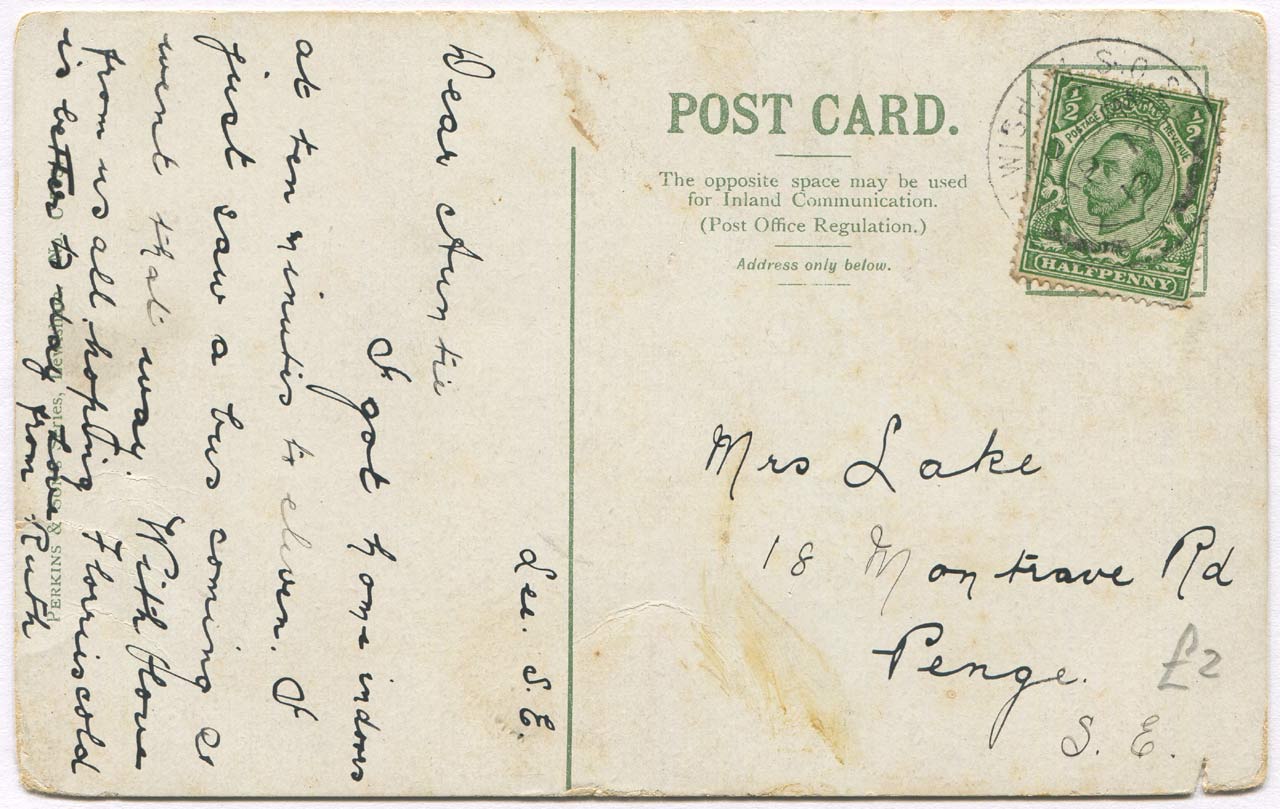 Lee. S. E.
Dear Auntie
I got home indoors
at ten minutes to eleven. I
just saw a bus coming so
went that way. With love
from us all, hoping Florriscold
is better to day love
from Ruth
PERKINS & Lewisham
POST CARD.
The opposite space may be used
for Inland Communication.
(Post Office Regulation.)
Address only below.
½ ½
POSTAGE REVENUE
HALFPENNY
Mrs Lake
18 Montrave Rd
Penge.
S. E.
£2